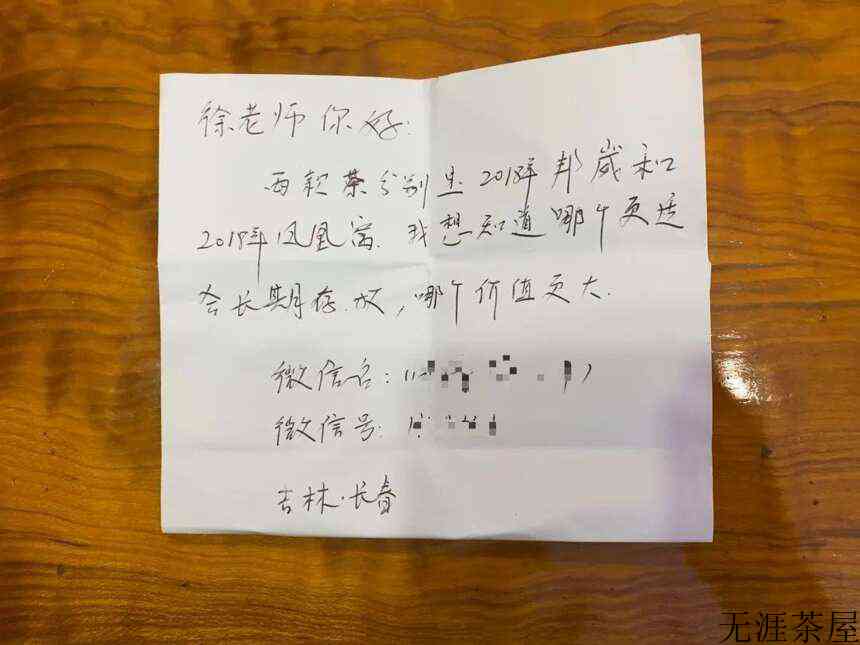 徐老师你好:
两款茶分别是2018年邦崴和
2018年凤凰窝.我想知道哪个更适
合长期存放,哪个价值更大.
微信名:
微信号:
吉林·长春
无涯茶屋